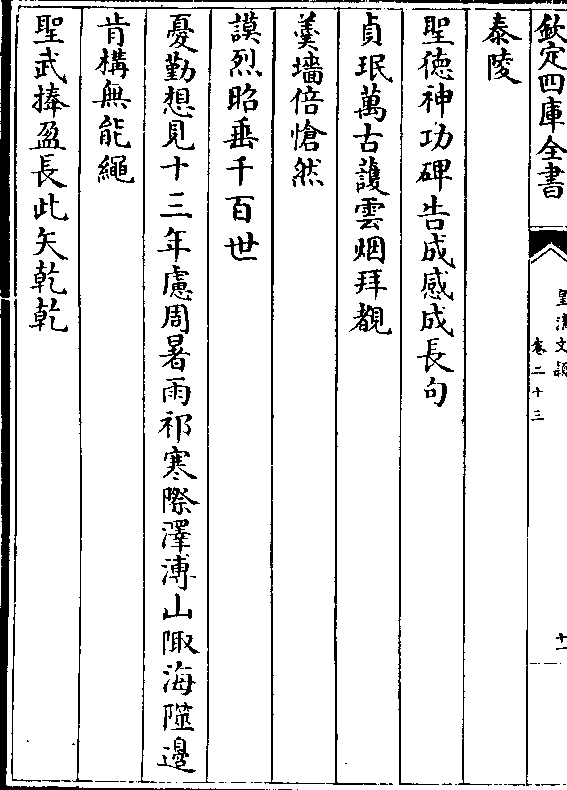 欽定四庫全書
皇清文穎
卷二十三
十一
泰陵
聖德神功碑告成感成長句
貞珉萬古護雲烟拜覩
羹墻倍愴然
謨烈昭垂千百世
憂勤想見十三年慮周暑雨祁寒際澤溥山陬海澨邊
肯構無能繩
聖武捧盈長此矢乾乾